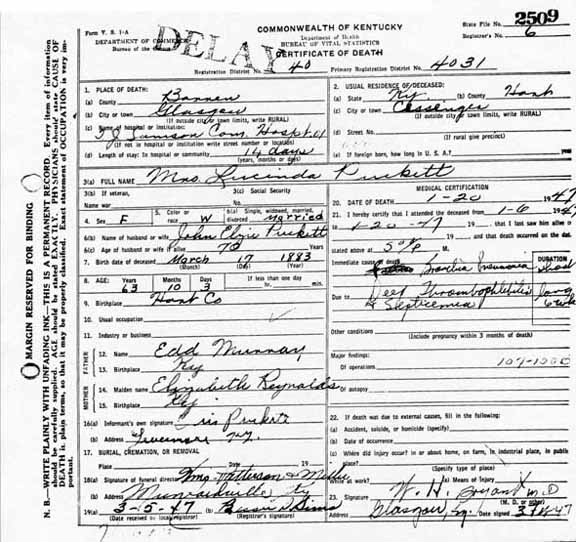 Form V. S. 1-A
DEPARTMENT OF COMMERCE
Bureau of the
DELAY
COMMONWEALTH OF KENTUCKY
Department of Health
BUREAU OF VITAL STATISTICS
CERTIFICATE OF DEATH
State File No. 2509
Registrar's No. 6
Registration District No. 40
Primary Registration District No. 4031
MARGIN RESERVED FOR BINDING
N. B.—WRITE PLAINLY WITH UNFADING INK.—THIS IS A PERMANENT RECORD. Every item of information
should be carefully supplied. AGE should be stated EXACTLY. PHYSICIANS should state CAUSE OF
DEATH in plain terms, so that it may be properly classified. Exact statement of OCCUPATION is very im-
portant.
1. PLACE OF DEATH:
(a) County Barren
(b) City or town Glasgow
(If outside city or town limits, write RURAL)
(c) Name of hospital or institution:
T J Samson Com. Hospital
(If not in hospital or institution write street number or location)
(d) Length of stay: In hospital or community 14 days
(years, months or days)
2. USUAL RESIDENCE OF DECEASED:
(a) State Ky. (b) County Hart
(c) City or town
(If outside city or town limits, write RURAL)
(d) Street No.
(If rural give precinct)
(e) If foreign born, how long in U. S. A.?
3(a) FULL NAME Mrs Lucinda Puckett
3(b) If veteran,
Name war
3(c) Social Security
No.
4. Sex F
5. Color or
race W
6(a) Single, widowed, married,
divorced Married
6(b) Name of husband or wife John Elzie Puckett
6(c) Age of husband or wife if alive 70 Years
7. Birth date of deceased March 17 1883
(Month) (Day) (Year)
8. AGE: Years Months Days If less than one day
63 10 3 hr. min.
9. Birthplace Hart Co
10. Usual occupation
11. Industry or business
FATHER
12. Name Edd Murray
13. Birthplace Ky
MOTHER
14. Maiden name Elizabeth Reynolds
15. Birthplace Ky
16(a) Informant's own signature Puckett
(b) Address
17. BURIAL, CREMATION, OR REMOVAL
Place Date 19
18(a) Signature of funeral director
(b) Address Munfordville Ky
19(a) 3-15-47 (b)
(Date received by local registrar) (Registrar's signature)
MEDICAL CERTIFICATION
20. DATE OF DEATH 1-20 1947
21. I hereby certify that I attended the deceased from 1-6 1947
to 1-20-47 19 , that I last saw him alive on
19 , and that death occurred on the date
stated above at 5:00 P M.
Immediate cause of death Bronchial Pneumonia
DURATION
Due to Deep Thrombophlebitis
& Septicemia
Other conditions
(Include pregnancy within 3 months of death)
Major findings:
Of operations
Of autopsy
22. If death was due to external causes, fill in the following:
(a) Accident, suicide, or homicide (specify)
(b) Date of occurrence
(c) Where did injury occur? in or about home, on farm, in industrial place, in public
place?
(Specify type of place)
While at work? (e) Means of Injury
23. Signature W. H. Bryant M.D
(M. D. or other)
Address Glasgow, Ky. Date signed